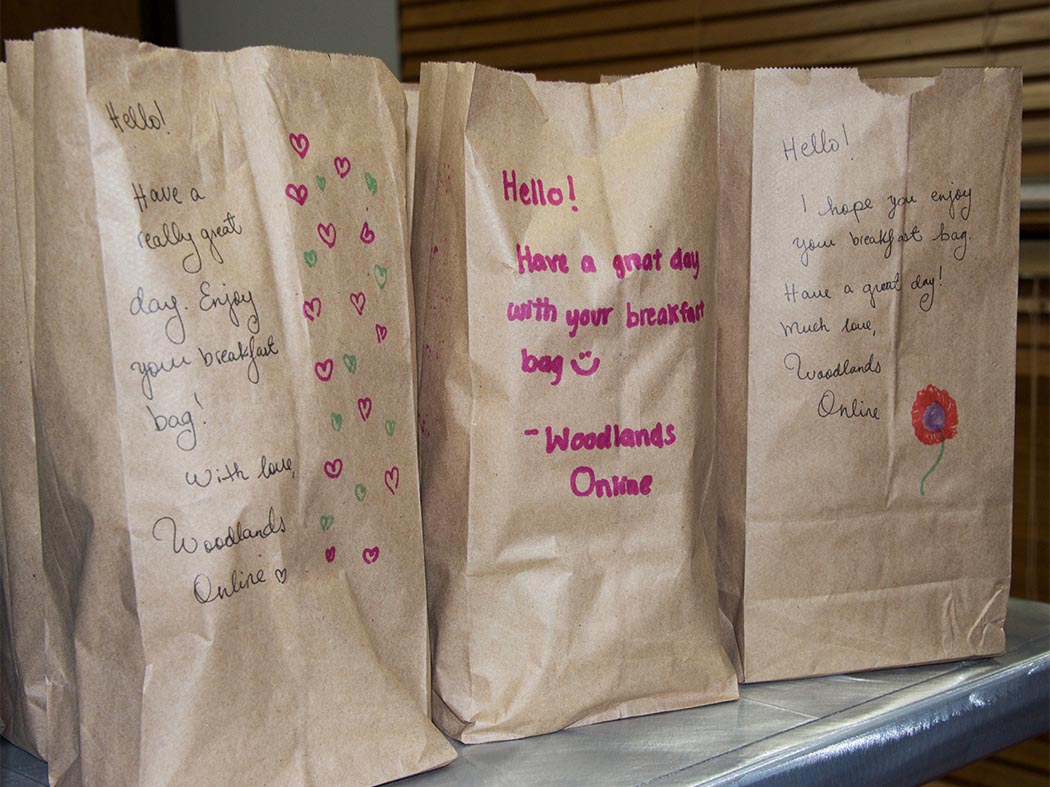 Hello!
Have a
really great
day. Enjoy
your breakfast
bag!
With love,
Woodlands
Online
Hello!
Have a great day
with your breakfast
bag
- Woodlands
Online
Hello!
I hope you enjoy
your breakfast bag.
Have a great day!
Much love,
Woodlands
Online